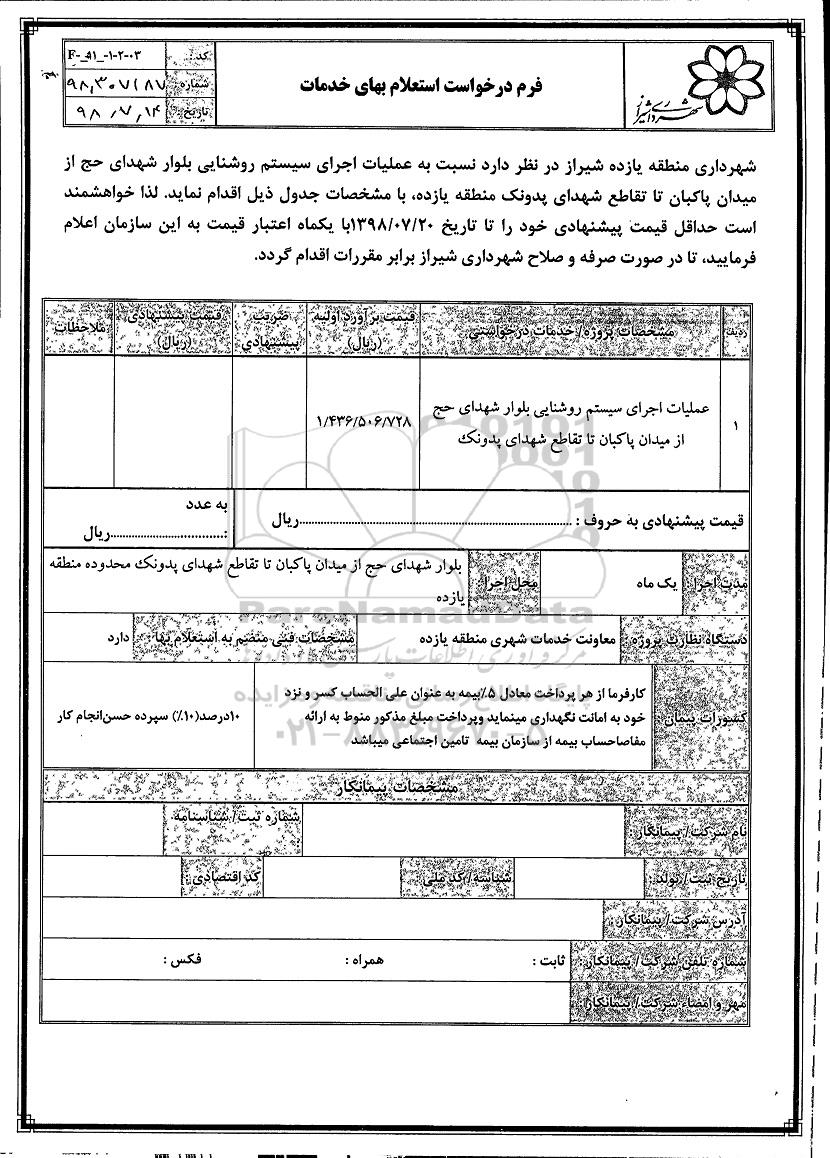 شهرداری شیراز
فرم درخواست استعلام بهای خدمات
کد: F-_۹۱_-۱-۲-۰۳
شماره: ۹۸٫۳۰۷۱۸۷
تاریخ: ۹۸٫۷٫۱۴
شهرداری منطقه یازده شیراز در نظر دارد نسبت به عملیات اجرای سیستم روشنایی بلوار شهدای حج از
میدان پاکبان تا تقاطع شهدای پدونک منطقه یازده، با مشخصات جدول ذیل اقدام نماید. لذا خواهشمند
است حداقل قیمت پیشنهادی خود را تا تاریخ ۱۳۹۸/۰۷/۲۰با یکماه اعتبار قیمت به این سازمان اعلام
فرمایید، تا در صورت صرفه و صلاح شهرداری شیراز برابر مقررات اقدام گردد.
ردیف مشخصات پروژه/خدمات درخواستی قیمت برآورد اولیه (ریال) ضریب پیشنهادی قیمت پیشنهادی (ریال) ملاحظات
۱ عملیات اجرای سیستم روشنایی بلوار شهدای حج ۱/۴۳۶/۵۰۶/۷۲۸
از میدان پاکبان تا تقاطع شهدای پدونک
قیمت پیشنهادی به حروف : ..........ریال به عدد
:..........ریال
مدت اجرا: یک ماه محل اجرا: بلوار شهدای حج از میدان پاکبان تا تقاطع شهدای پدونک محدوده منطقه
یازده
دستگاه نظارت پروژه: معاونت خدمات شهری منطقه یازده مشخصات فنی منضم به استعلام بها: دارد
کسورات پیمان کارفرما از هر پرداخت معادل ۵٪بیمه به عنوان علی الحساب کسر و نزد
خود به امانت نگهداری مینماید وپرداخت مبلغ مذکور منوط به ارائه ۱۰درصد(۱۰٪) سپرده حسن‌انجام کار
مفاصاحساب بیمه از سازمان بیمه تامین اجتماعی میباشد
مشخصات پیمانکار
نام شرکت/ پیمانکار: شماره ثبت/ شناسنامه:
تاریخ ثبت/ تولد: شناسه/ کد ملی: کد اقتصادی:
آدرس شرکت/ پیمانکار:
شماره تلفن شرکت/ پیمانکار: ثابت : همراه : فکس :
مهر و امضاء شرکت/ پیمانکار:
ParsNamadData